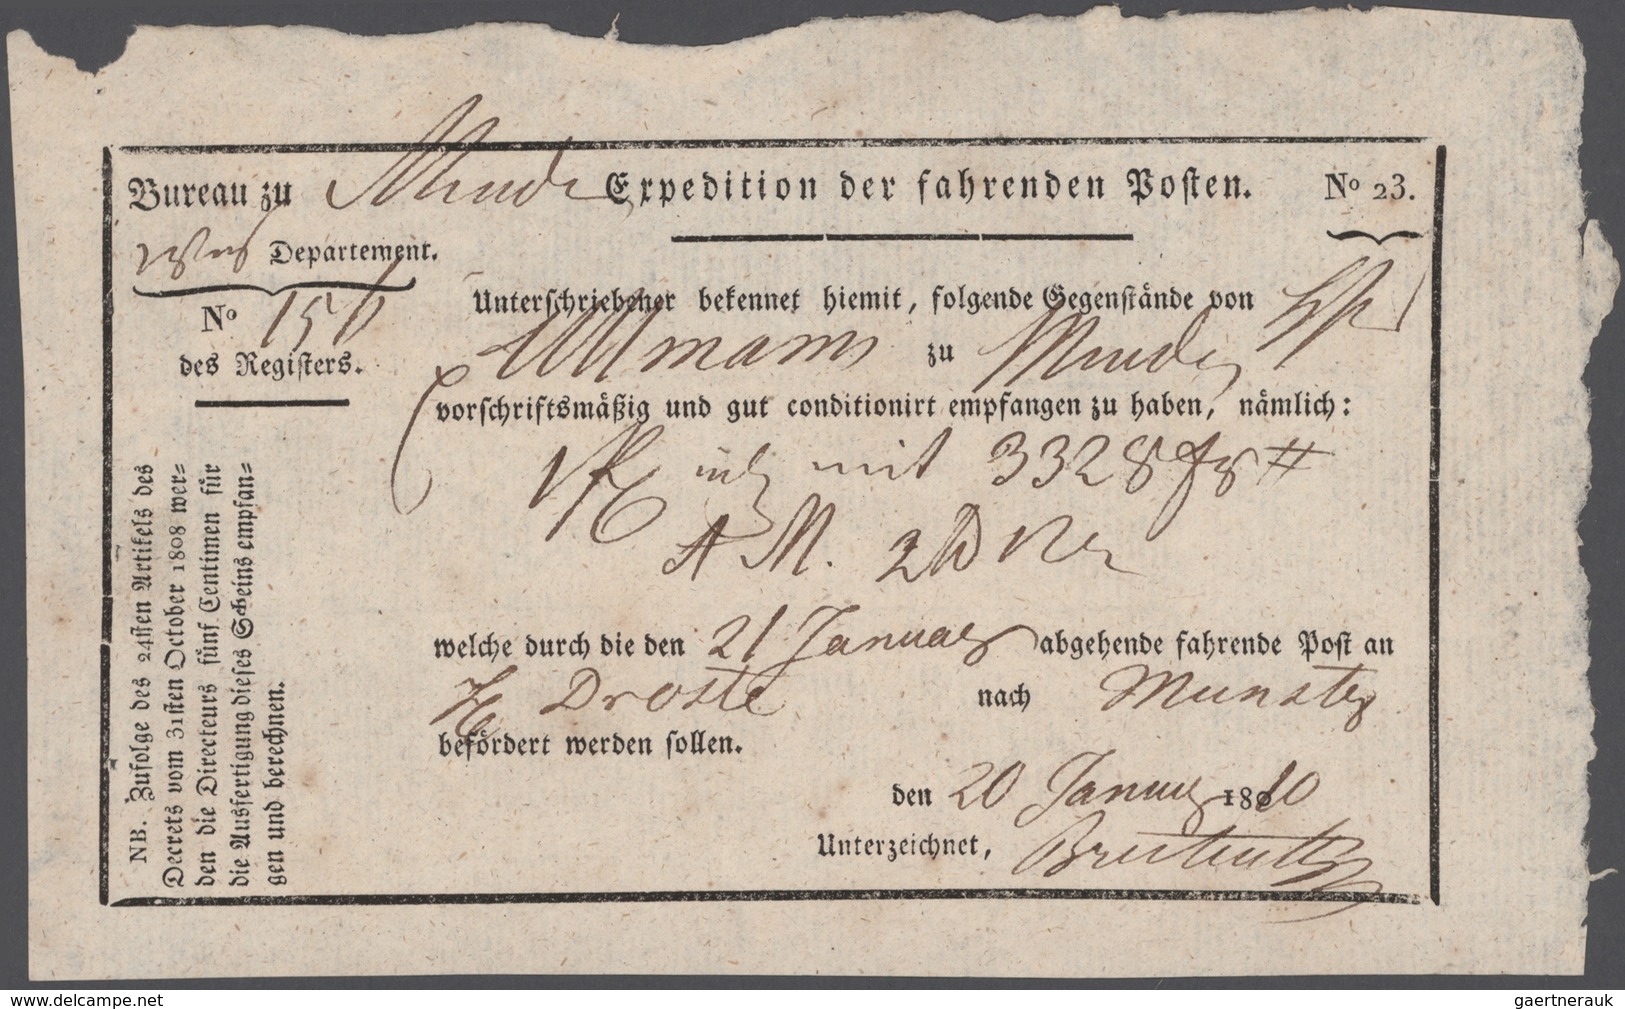 Bureau zu Minden Expedition der fahrenden Posten. No 23.
Departement.
No 156
des Registers.
Unterschriebener bekennet hiemit, folgende Gegenstände von
Ullmann zu Minden
vorschriftsmäßig und gut conditionirt empfangen zu haben, nämlich:
mit 3328
A M.
welche durch die den 21 Januar abgehende fahrende Post an
H Droste nach Munster
befördert werden sollen.
den 20 Januar 1810
Unterzeichnet,
NB. Zufolge des 24sten Artikels des
Decrets vom 31sten October 1808 wer=
den die Directeurs fünf Centimen für
die Ausfertigung dieses Scheins empfan=
gen und berechnen.
www.delcampe.net
gaertnerauk